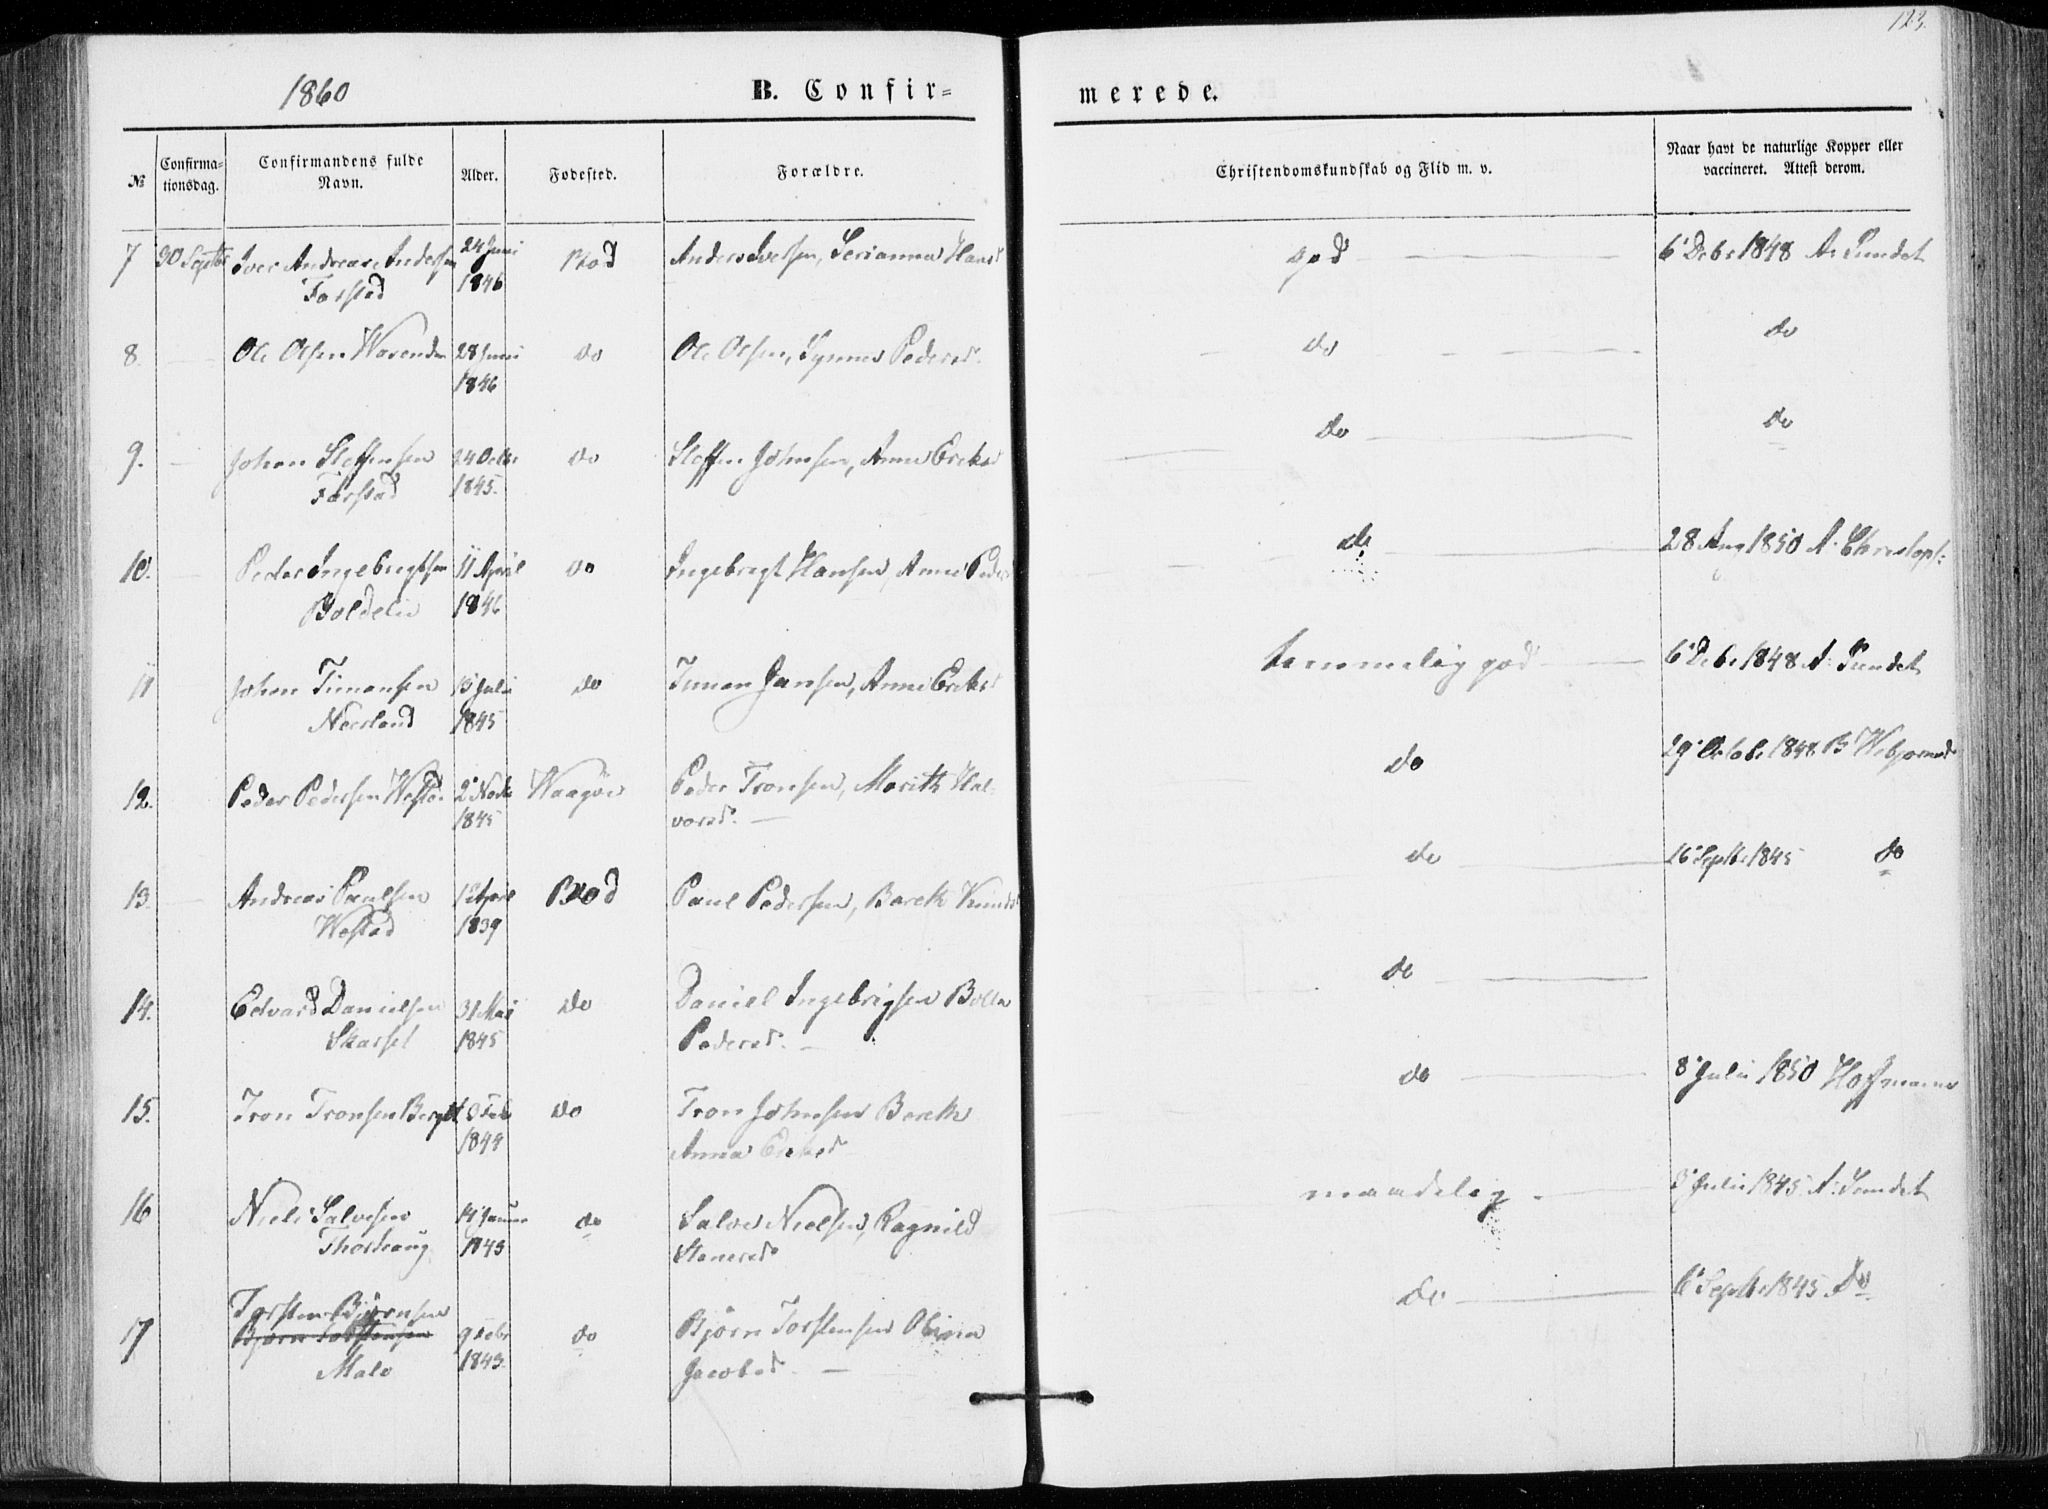 123.
1860 B. Confir=
merede.
№ Confirma=
tionsdag. Confirmandens fulde
Navn. Alder. Fødested. Forældre. Christendomskundskab og Flid m. v. Naar havt de naturlige Kopper eller
vaccineret. Attest derom.
7 30 Septbr Iver Andreas Andersen 24 Juni Bod Anders Iversen, Serianna Hansd god 6' Debr 1848 A. Sundet
Farstad 1846
8. Ole Olsen 28 Juni do Ole Olsen, Synnev Pedersd. do do
1846
9. Johan Steffensen 24 Octbr do Steffen Johnsen, Anne Eriksd do do
Farstad 1845.
10. Peder Ingebrigtsen 11 April do Ingebrigt Hansen, Anne Peders do 28 Aug 1850 A. Christoph:
Boldelie 1846
11 Johan Timansen 13 Juli do Timan Jansen, Anne Eriksd temmelig god 6' Debr 1848 A. Sundet
Neerland 1845
12. Peder Pedersen Westad 2' Novbr Waagøe Peder Tronsen, Marith Hal= do 29' Octobr 1848 B
1845 vorsd.
13. Andreas Paulsen 12 April Bod Paul Pedersen, Bereth Knudsd do 16' Septbr 1845 do
Westad 1839
14. Edvard Danielsen 31 Mai do Daniel Ingebrigsen do
Skarset 1845 Pedersd.
15. Tron Tronsen Feb do Tron Johnsen Bereth do 8' Julii 1850 Hoffmann
1844 Anna Eriksd
16 Niels Salvesen 14 Januar do Salve Nielsen, Ragnild maadelig 3' Julii 1845 A. Sundet
1845 Stenersd
Torsten Bjørnsen
17 Bjørn Torstensen 9 Febr do Bjørn Torstensen Olina do 6' Septbr 1845. Do
Malo 1845. Jacobsd.